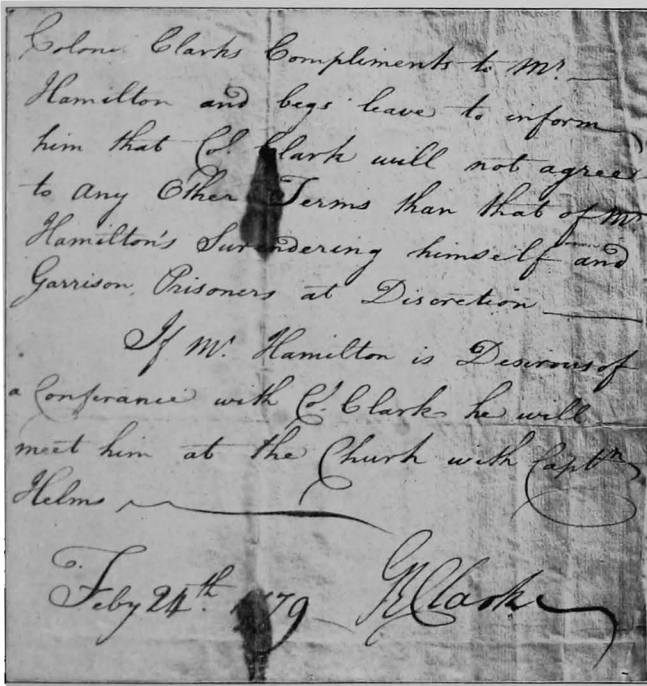 Colone Clarks Compliments to Mr.
Hamilton and begs leave to inform
him that Col. Clark will not agree
to any Other Terms than that of Mr
Hamilton's Surendering himself and
Garrison, Prisoners at Discretion
If Mr. Hamilton is Desirous of
a Conferance with Col. Clark he will
meet him at the Church with Captn
Helms
Feby 24th. 1779
GRClark